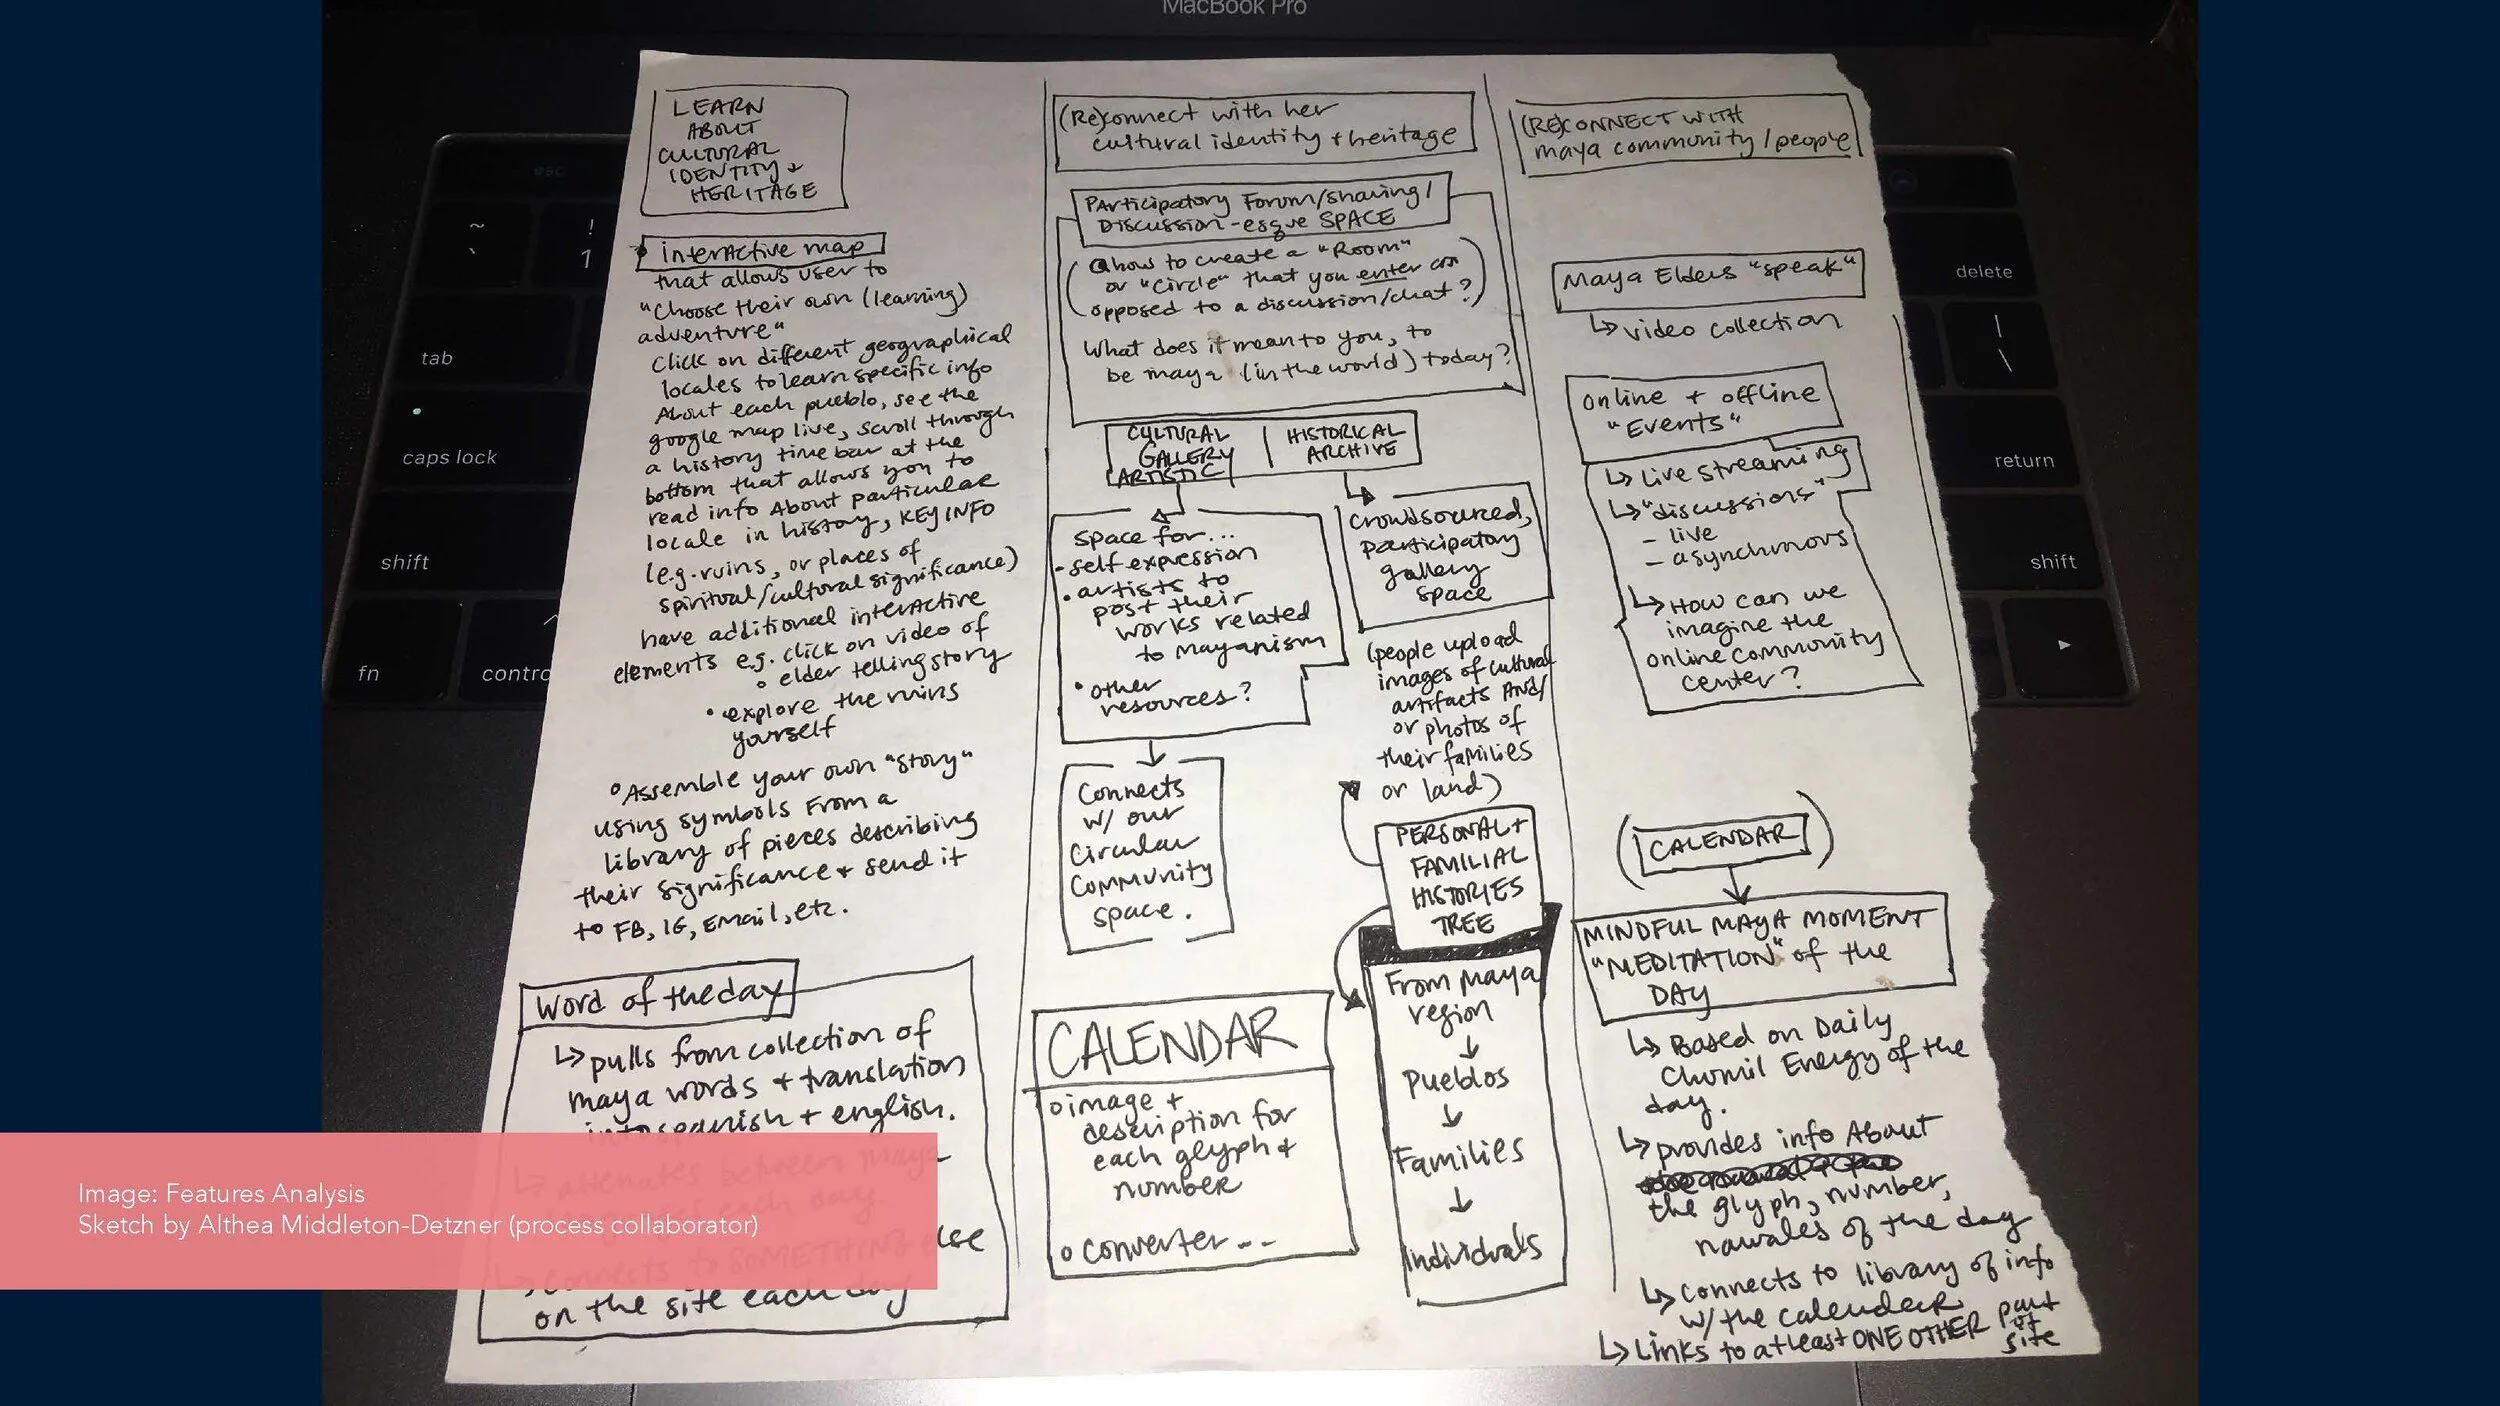 MacBook Pro
LEARN
ABOUT
CULTURAL
IDENTITY +
HERITAGE
• interactive map
that allows user to
"Choose their own (learning)
adventure"
Click on different geographical
locales to learn specific info
About each pueblo, see the
google map live, scroll through
a history time bar at the
bottom that allows you to
read info About particular
locale in history, KEY INFO
(e.g. ruins, or places of
spiritual/cultural significance)
have additional interactive
elements e.g. click on video of
• elder telling story
• explore the ruins
yourself
• Assemble your own "story"
using symbols From a
library of pieces describing
their significance + send it
to FB, IG, Email, etc.
Word of the day
↳ pulls from collection of
maya words + translation
into spanish + english.
↳ alternates between maya
each day
↳ connects to SOMETHING else
on the site each day
(Re)connect with her
cultural identity + heritage
PArticipatory Forum/sharing/
Discussion-esque SPACE
(Qhow to create a "Room"
or "Circle" that you enter
opposed to a discussion/chat?)
What does it mean to you, to
be maya (in the world) today?
CULTURAL
GALLERY
ARTISTIC
HISTORICAL
ARCHIVE
space for...
- self expression
• artists to
post their
works related
to mayanism
• other
resources?
Connects
w/ our
Circular
Community
space.
crowdsourced,
participatory
gallery
space
(people upload
images of cultural
artifacts AND/
or photos of
their families
or land)
PERSONAL +
FAMILIAL
HISTORIES
TREE
From Maya
region
↓
Pueblos
↓
Families
↓
individuals
CALENDAR
o image +
description for
each glyph +
number
o converter...
(RE)CONNECT WITH
maya community/people
Maya Elders "speak"
↳ video collection
online + offline
"Events"
↳ live streaming
↳ "discussions"
- live
- asynchronous
↳ How can we
imagine the
online community
center?
(CALENDAR)
MINDFUL MAYA MOMENT
"MEDITATION" of the
DAY
↳ Based on Daily
Chumil Energy of the
day.
↳ provides info About
the glyph, number,
nawales of the day
↳ connects to library of info
w/ the calendar
↳ Links to at least ONE OTHER part
of
site
esc
~
`
!
1
tab
caps lock
shift
fn
contro
delete
|
\
return
shift
Image: Features Analysis
Sketch by Althea Middleton-Detzner (process collaborator)